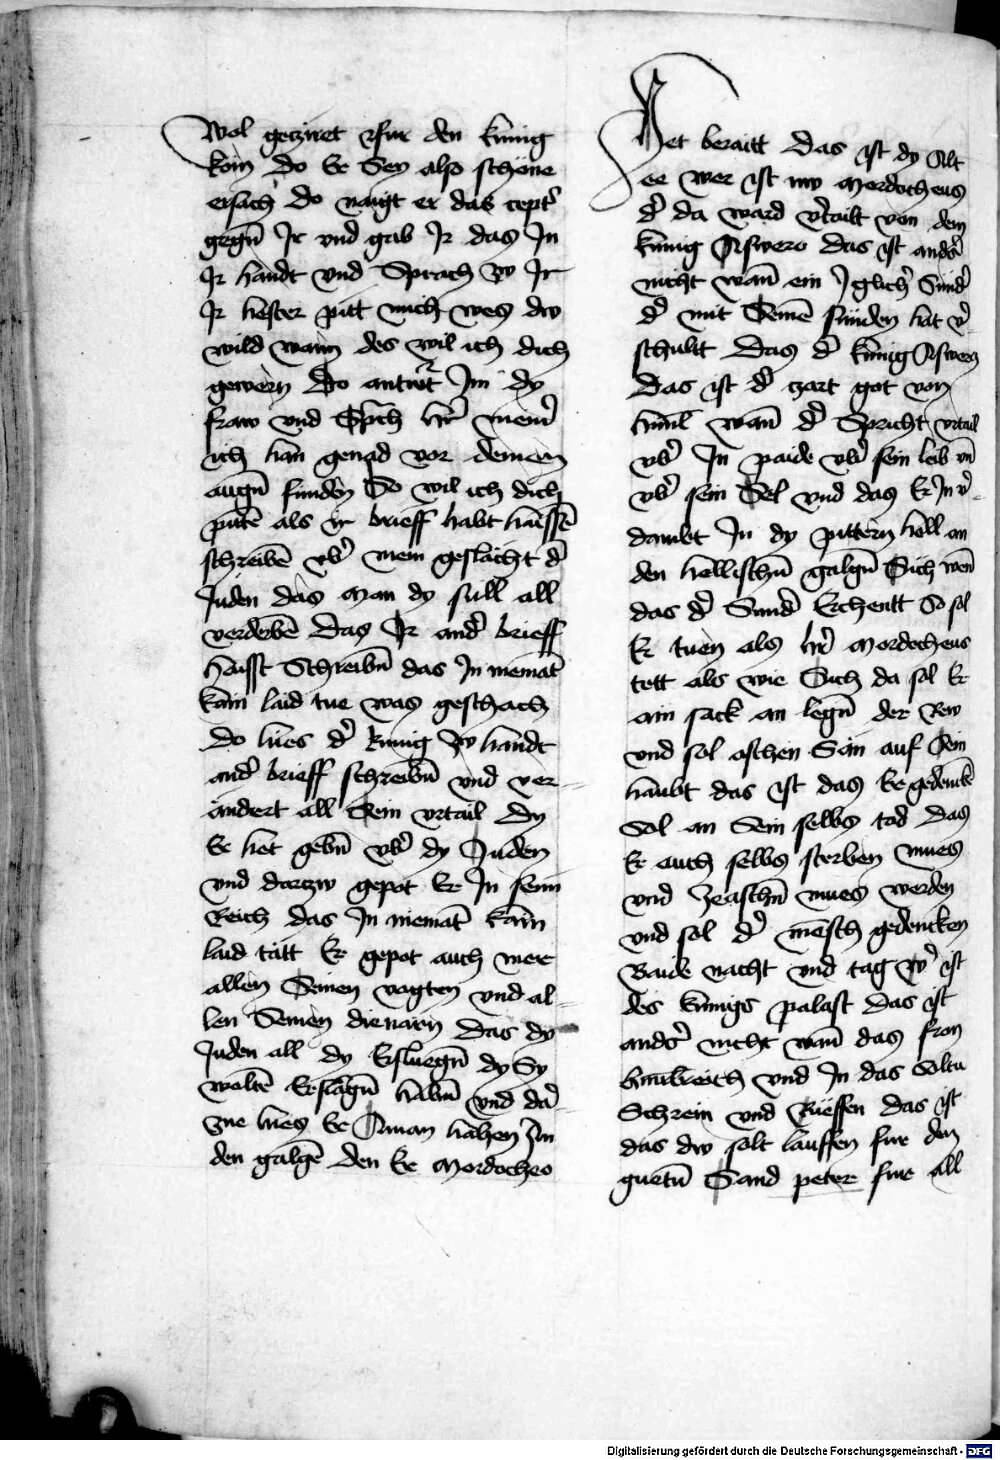 wol gecziret ffur den kunig
kom do Er Sey also schone
ersach do naigt er das ceptr̄
gegn̄ Ir vnd gab Ir das In
Ir handt vnd Sprach zv Ir
Ir hester pitt mich wes dw
wild wann des wil ich dich
gewern Do antwrt̄ Im dy
fraw vnd Sp̄ch hr̄ mein̄
ich han genad vor deinen
augn̄ funden So wil ich dich
pitē als ir brieff habt haissē
schreibē vbr̄ mein geslacht dr̄
Juden das man dy sull all
verderbē Das Ir andr̄ brieff
haisst Schreibn̄ das In niemāt
kain laid tue was geschach
do hies dr̄ kunig zw handt
andr̄ brieff schreibn̄ vnd ver-
andert all Sein vrtail Dy
Er het gebn̄ vbr̄ dy Juden
vnd darczw gepot Er In seim
Reich das In niemāt kain
laid tatt Er gepot auch mer
allen Seinen vogten vnd al-
len Seinen dienarn Das dy
Juden all dy Ersluegn̄ dy Sy
woltē Erslagn̄ habn̄ vnd dar̄
zue hies Er Aman hahen Im
den galgē den Er mordocheo
Het beraitt Das ist dy Alt
ee wer ist nw mordocheus
dr̄ da ward vr̄tailt von dem
kunig Aswero das ist andr̄s
nicht wan̄ ein Iglichr̄ Sundr̄
dr̄ mit Seinē sunden hat vr̄-
schultt Das dr̄ kunig Aswerꝯ
Das ist dr̄ zart got von
himl̄ wan̄ dr̄ Spricht vrtail
vbr̄ In paide vbr̄ sein leib vn̄
vbr̄ sein Sel vnd das Er In vr̄-
dambt In dy pittern hell an
den hellischn̄ galgn̄ Sich wen̄
das dr̄ Sundr̄ Erchentt So sol
Er tuen als hr̄ mordocheus
tett als wie Sich da sol Er
ain sack an legn̄ der Rew
vnd sol aschen Sän auf Sein
haubt das ist das Er gedenck̄
Sol an Sein selbs tod Das
Er auch selbs sterben mues
vnd zeaschn̄ mues werden
vnd sol dr̄ mēsch gedencken
Baide nacht vnd tag wr̄ ist
des kunigs palast Das ist
andr̄s nicht wan̄ das fron
himlreich vnd In das soltu
Schrein vnd Rüeffen das ist
das dw solt lauffen fur den
guetn̄ Sand peter fur all
Digitalisierung gefördert durch die Deutsche Forschungsgemeinschaft - DFG